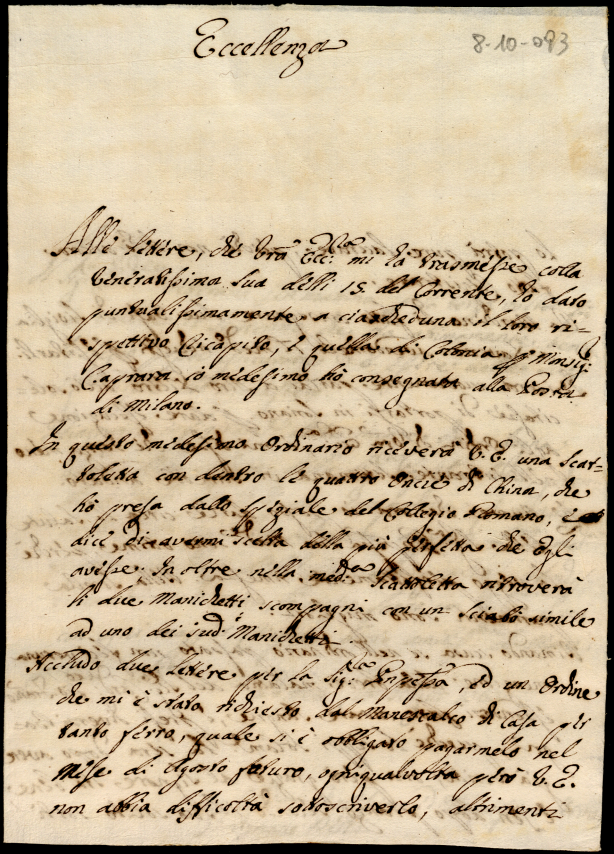 Eccellenza
8-10-093
Alle lettere, che Vrã Ecc:za mi hà trasmesse colla
Veneratissima sua delli 15 del Corrente, hò dato
puntualissimamente a ciascheduna il loro ri-
spettivo Ricapito, e quella di Colonia Monsig.
Caprara iò medesimo hò consegnata alla Posta
di Milano.
In questo medesimo Ordinario riceverà V. E. una Scat-
toletta con dentro le quattro Oncie di China, che
hò presa dallo speziale del Collegio Romano, e
dice di avermi scelta della più perfetta che Egli
avesse. In oltre nella med:a Scattoletta ritroverà
li due Manichetti scompagni con un simile
ad uno dei sud:i Manichetti.
Accludo due lettere per la Sig:ra Pnpessa, ed un Ordine
che mi è stato richiesto dal Manescalco di Casa per
tanto ferro, quale si è obbligato pagarmelo nel
Mese di Agosto futuro, ogni qualvolta però V. E.
non abbia difficoltà sottoscriverlo, altrimenti